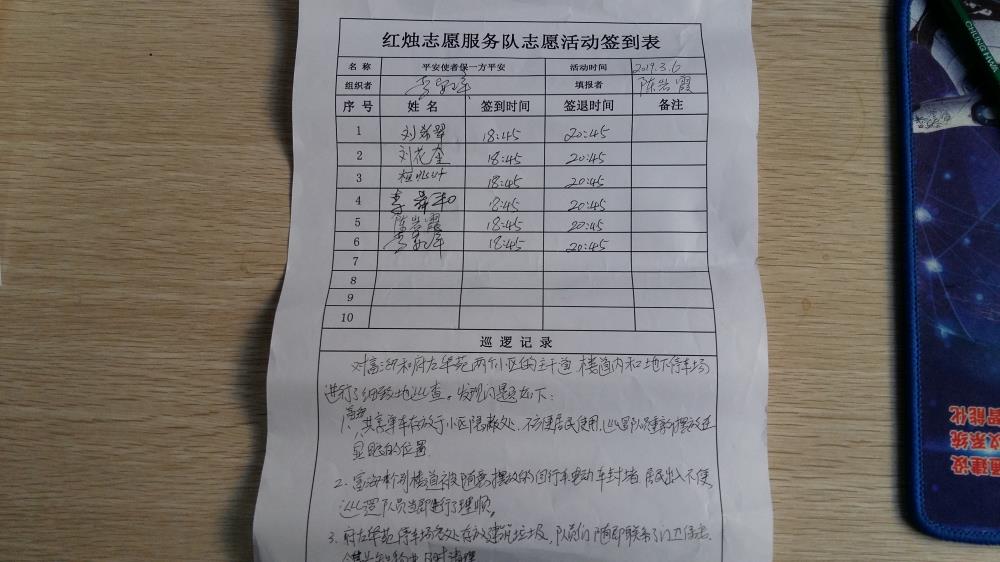 红烛志愿服务队志愿活动签到表
名称 平安使者保一方平安 活动时间 2019.3.6
组织者 填报者 陈岩霞
序号 姓名 签到时间 签退时间 备注
1 刘希翠 18:45 20:45
2 刘花奎 18:45 20:45
3 18:45 20:45
4 李舜和 18:45 20:45
5 陈岩霞 18:45 20:45
6 18:45 20:45
7
8
9
10
巡逻记录
对富海和府左华苑两个小区的主干道 楼道内和地下停车场
进行了细致地巡查。发现问题如下:
1、富海共享单车存放于小区隐蔽处、不方便居民使用,巡逻队员重新摆放在
显眼的位置
2、富海个别楼道被随意摆放的自行车电动车封堵 居民出入不便
巡逻队员当即进行了理顺。
3、府左华苑停车场多处存放建筑垃圾,队员们随即联系了门卫
及时清理
CHUNG HWA